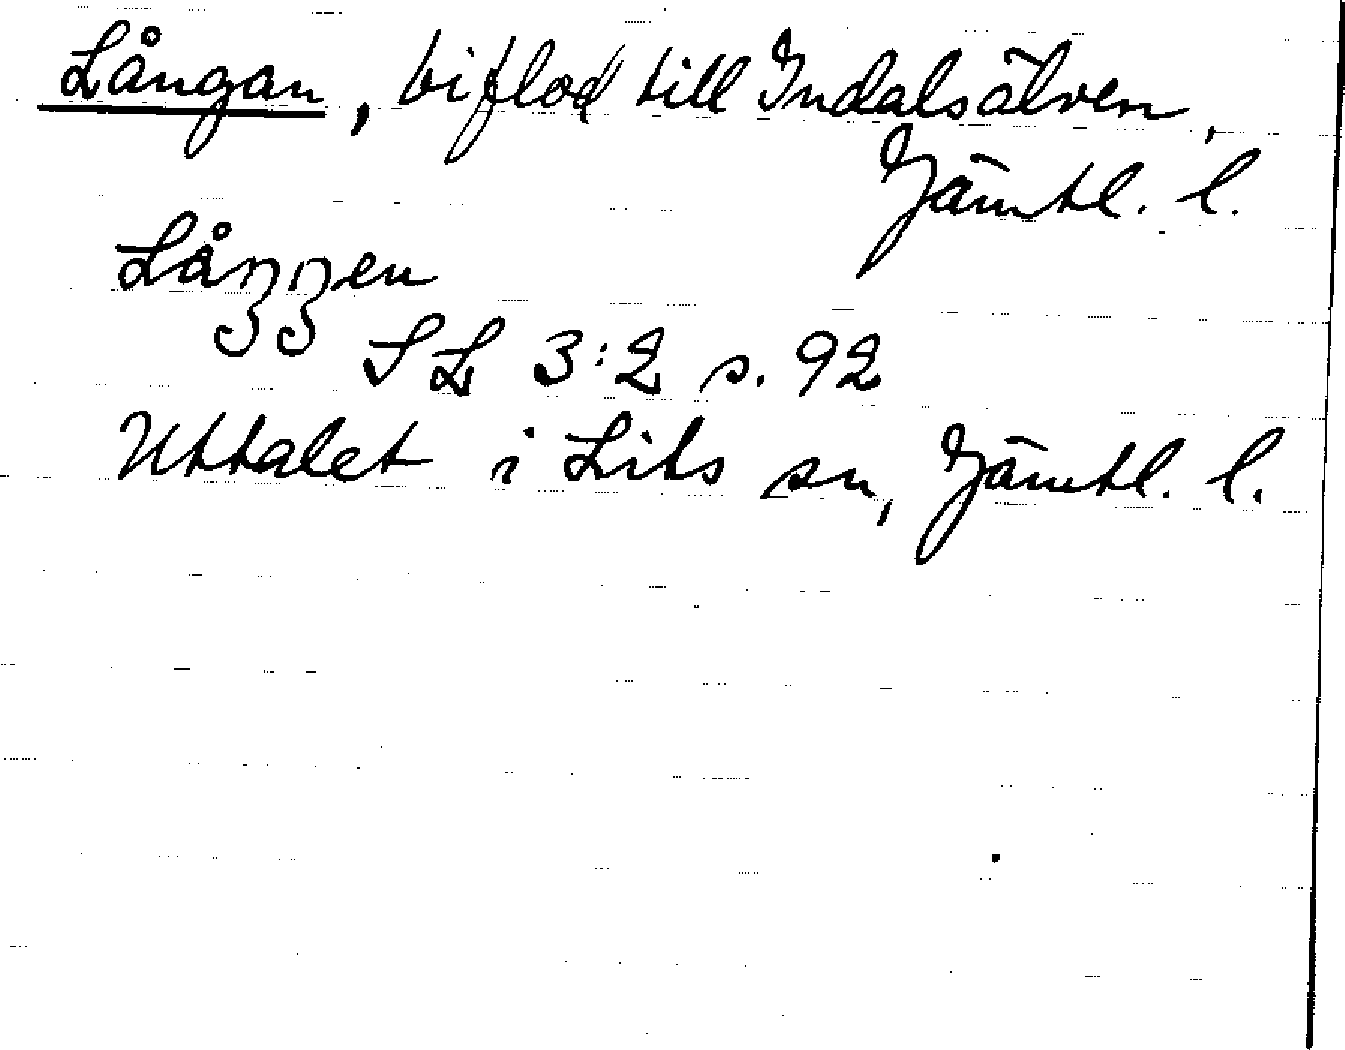 Långan, biflod till Indalsälven,
Jämtl. l.
Låŋŋen
SL 3:2 s. 92
Uttalet i Lits sn, Jämtl. l.